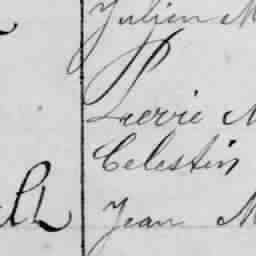 Julien M
Pierre M
Celestin
Jean M